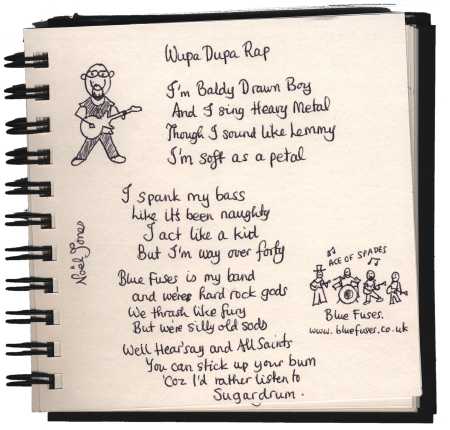 Wupa Dupa Rap
I'm Baldy Drawn Boy
And I sing Heavy Metal
Though I sound like Lemmy
I'm soft as a petal
I spank my bass
like it's been naughty
I act like a kid
But I'm way over forty
Blue Fuses is my band
and we're hard rock gods
We thrash like fury
But we're silly old sods
Well Hear'say and All Saints
You can stick up your bum
'Coz I'd rather listen to
Sugardrum.
Noël Jones
ACE OF SPADES
Blue Fuses.
www.bluefuses.co.uk